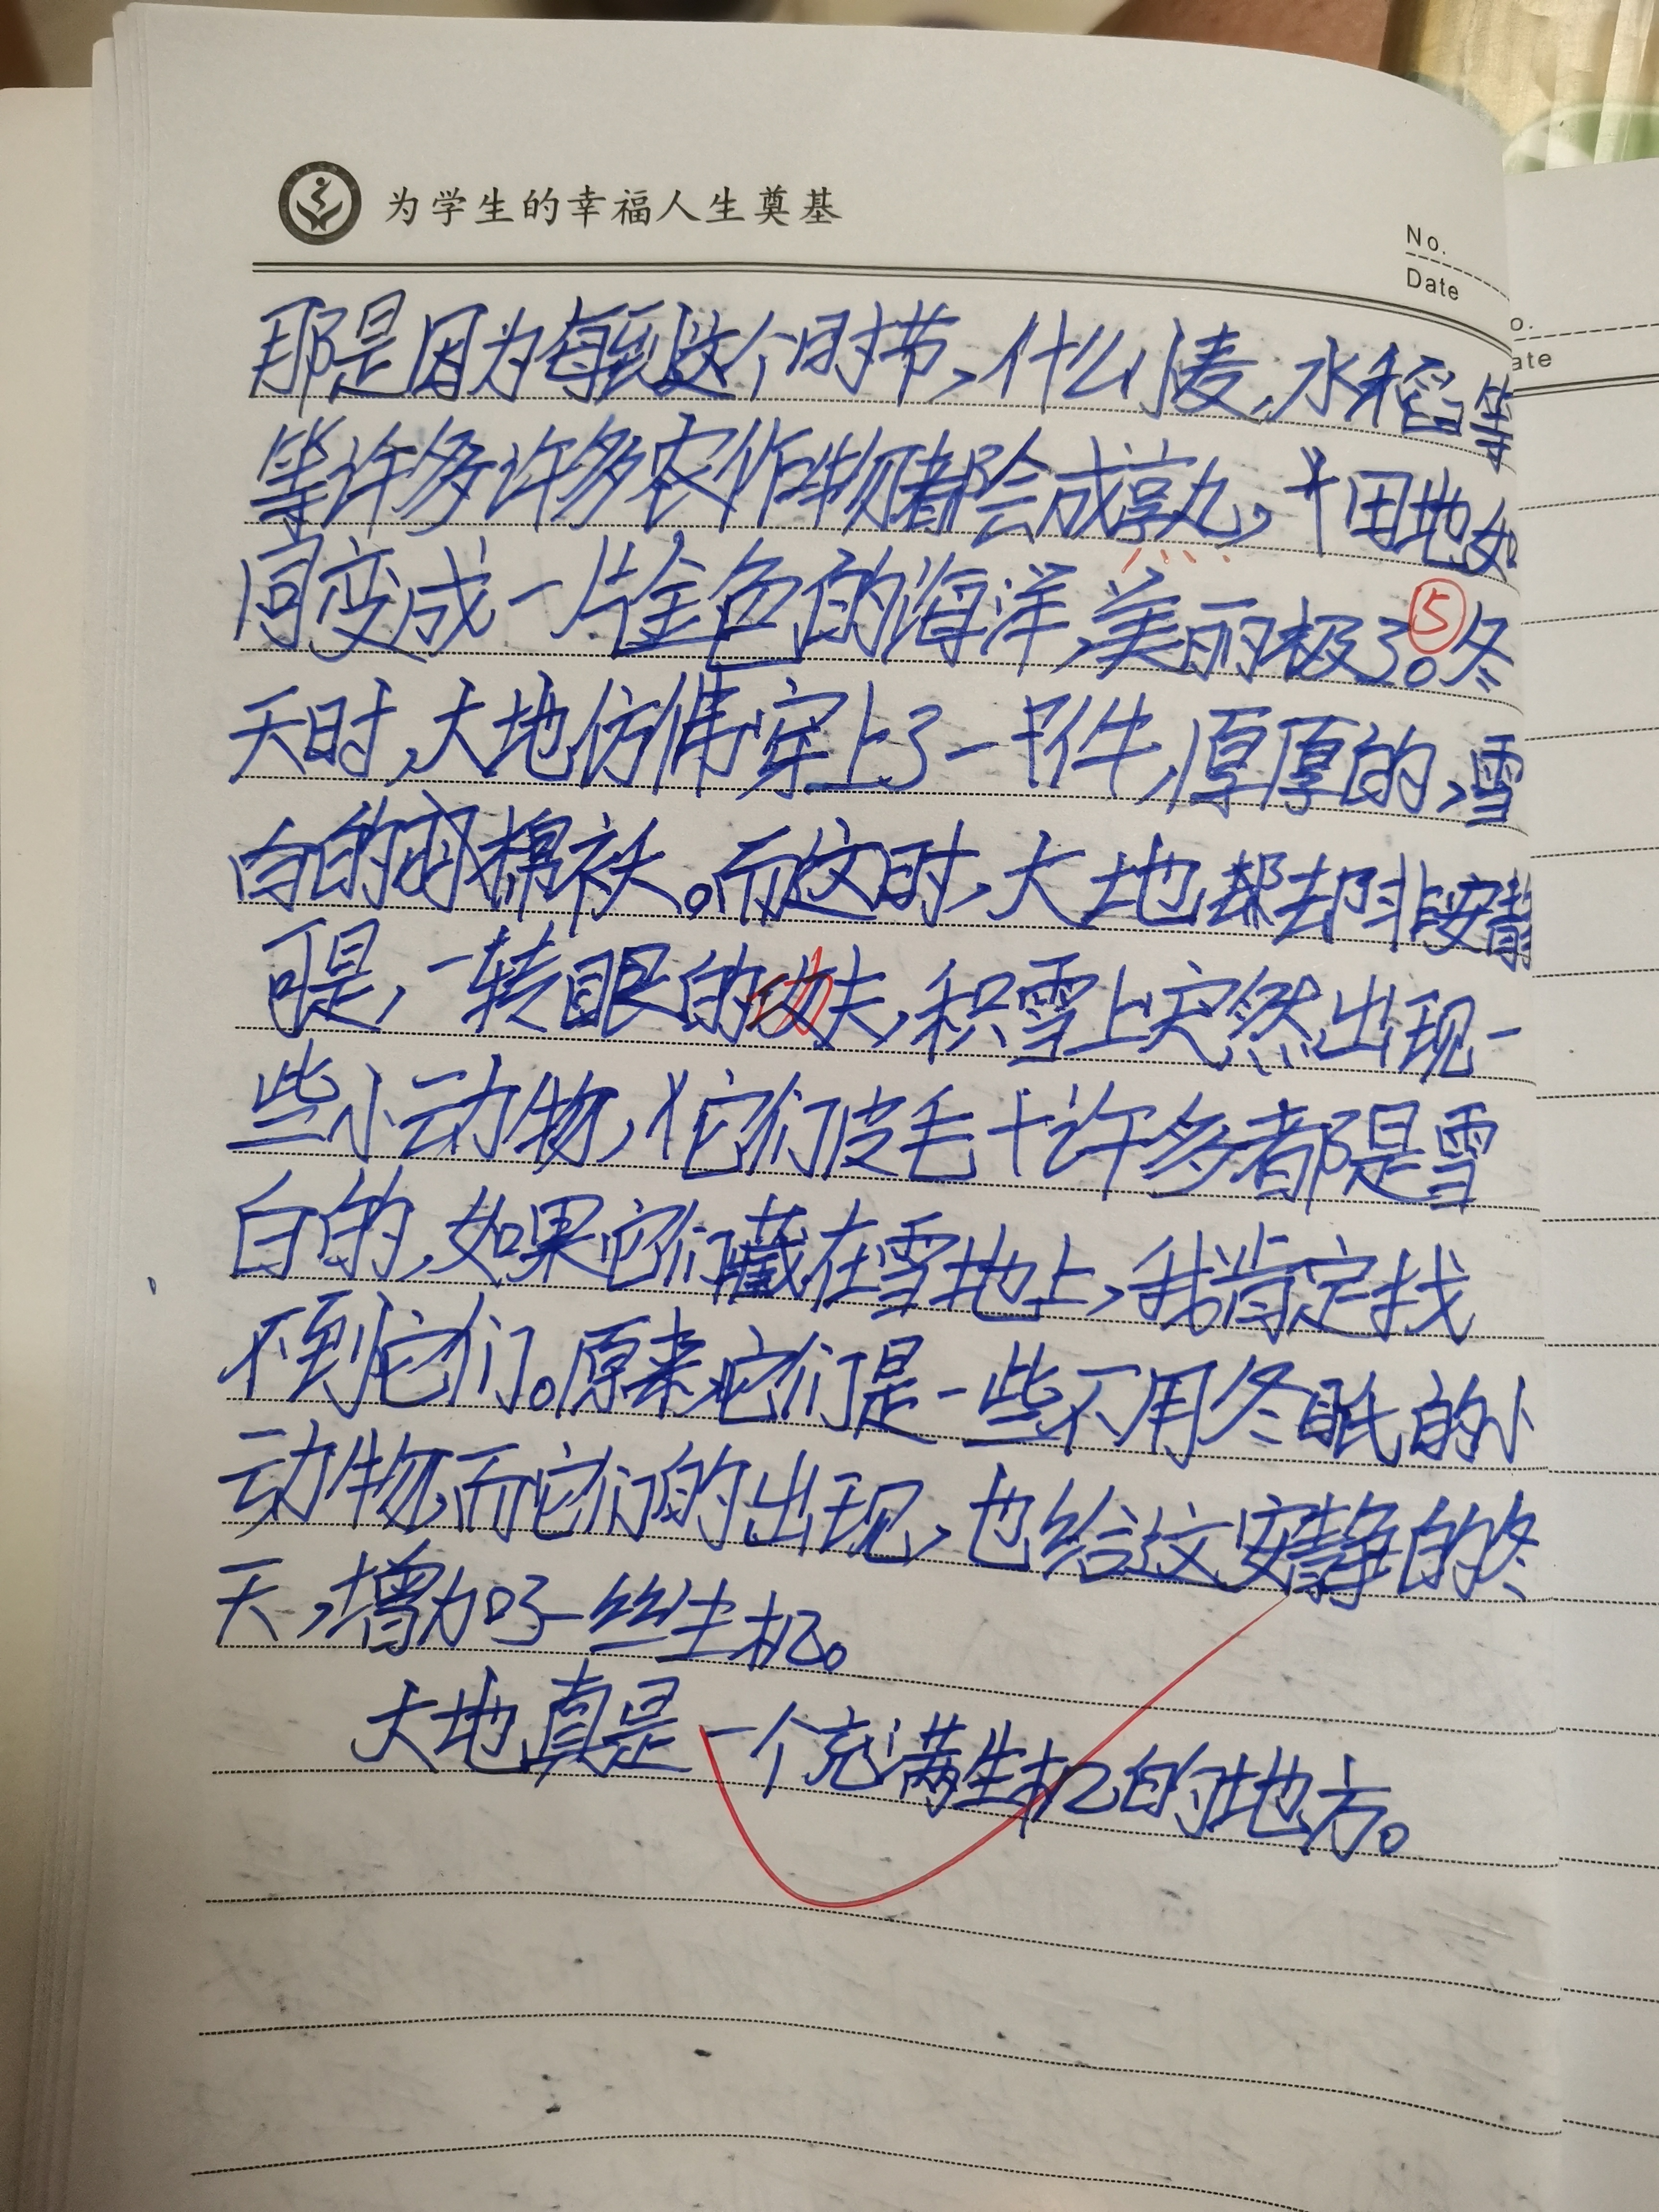 为学生的幸福人生奠基
No.
Date
那是因为每到这个时节，什么小麦，水稻等
等许多许多农作物都会成熟，田地如
同变成一片金色的海洋，美丽极了。⑤冬
天时，大地仿佛穿上了一件，厚厚的，雪
白的羽棉袄。而这时，大地却非安静
可是，一转眼的功夫，积雪上突然出现一
些小动物，它们皮毛许多都是雪
白的，如果它们藏在雪地上，我肯定找
不到它们。原来，它们是一些不用冬眠的小
动物，而它们的出现，也给这安静的冬
天，增加了一丝生机。
大地真是一个充满生机的地方。
o.
ate